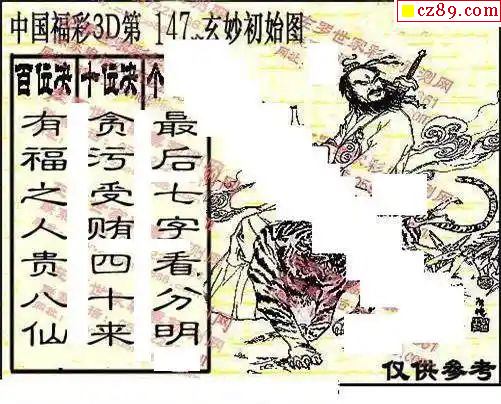 cz89.com
中国福彩3D第 147 玄妙初始图
百位决 十位决 个
有福之人贵八仙
贪污受贿四十来
最后七字看分明
仅供参考